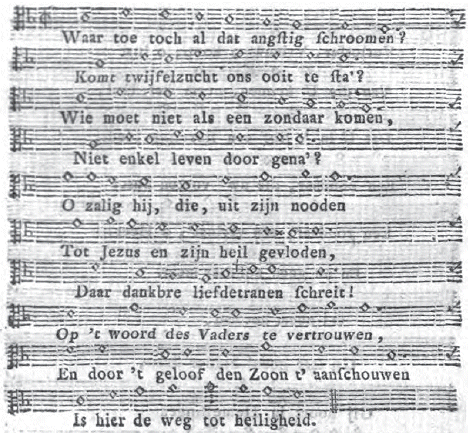 Waar toe toch al dat angſtig ſchroomen?
Komt twijfelzucht ons ooit te ſta'?
Wie moet niet als een zondaar komen,
Niet enkel leven door gena'?
O zalig hij, die, uit zijn nooden
Tot Jezus en zijn heil gevloden,
Daar dankbre liefdetranen ſchreit!
Op 't woord des Vaders te vertrouwen,
En door 't geloof den Zoon t' aanſchouwen
Is hier de weg tot heiligheid.